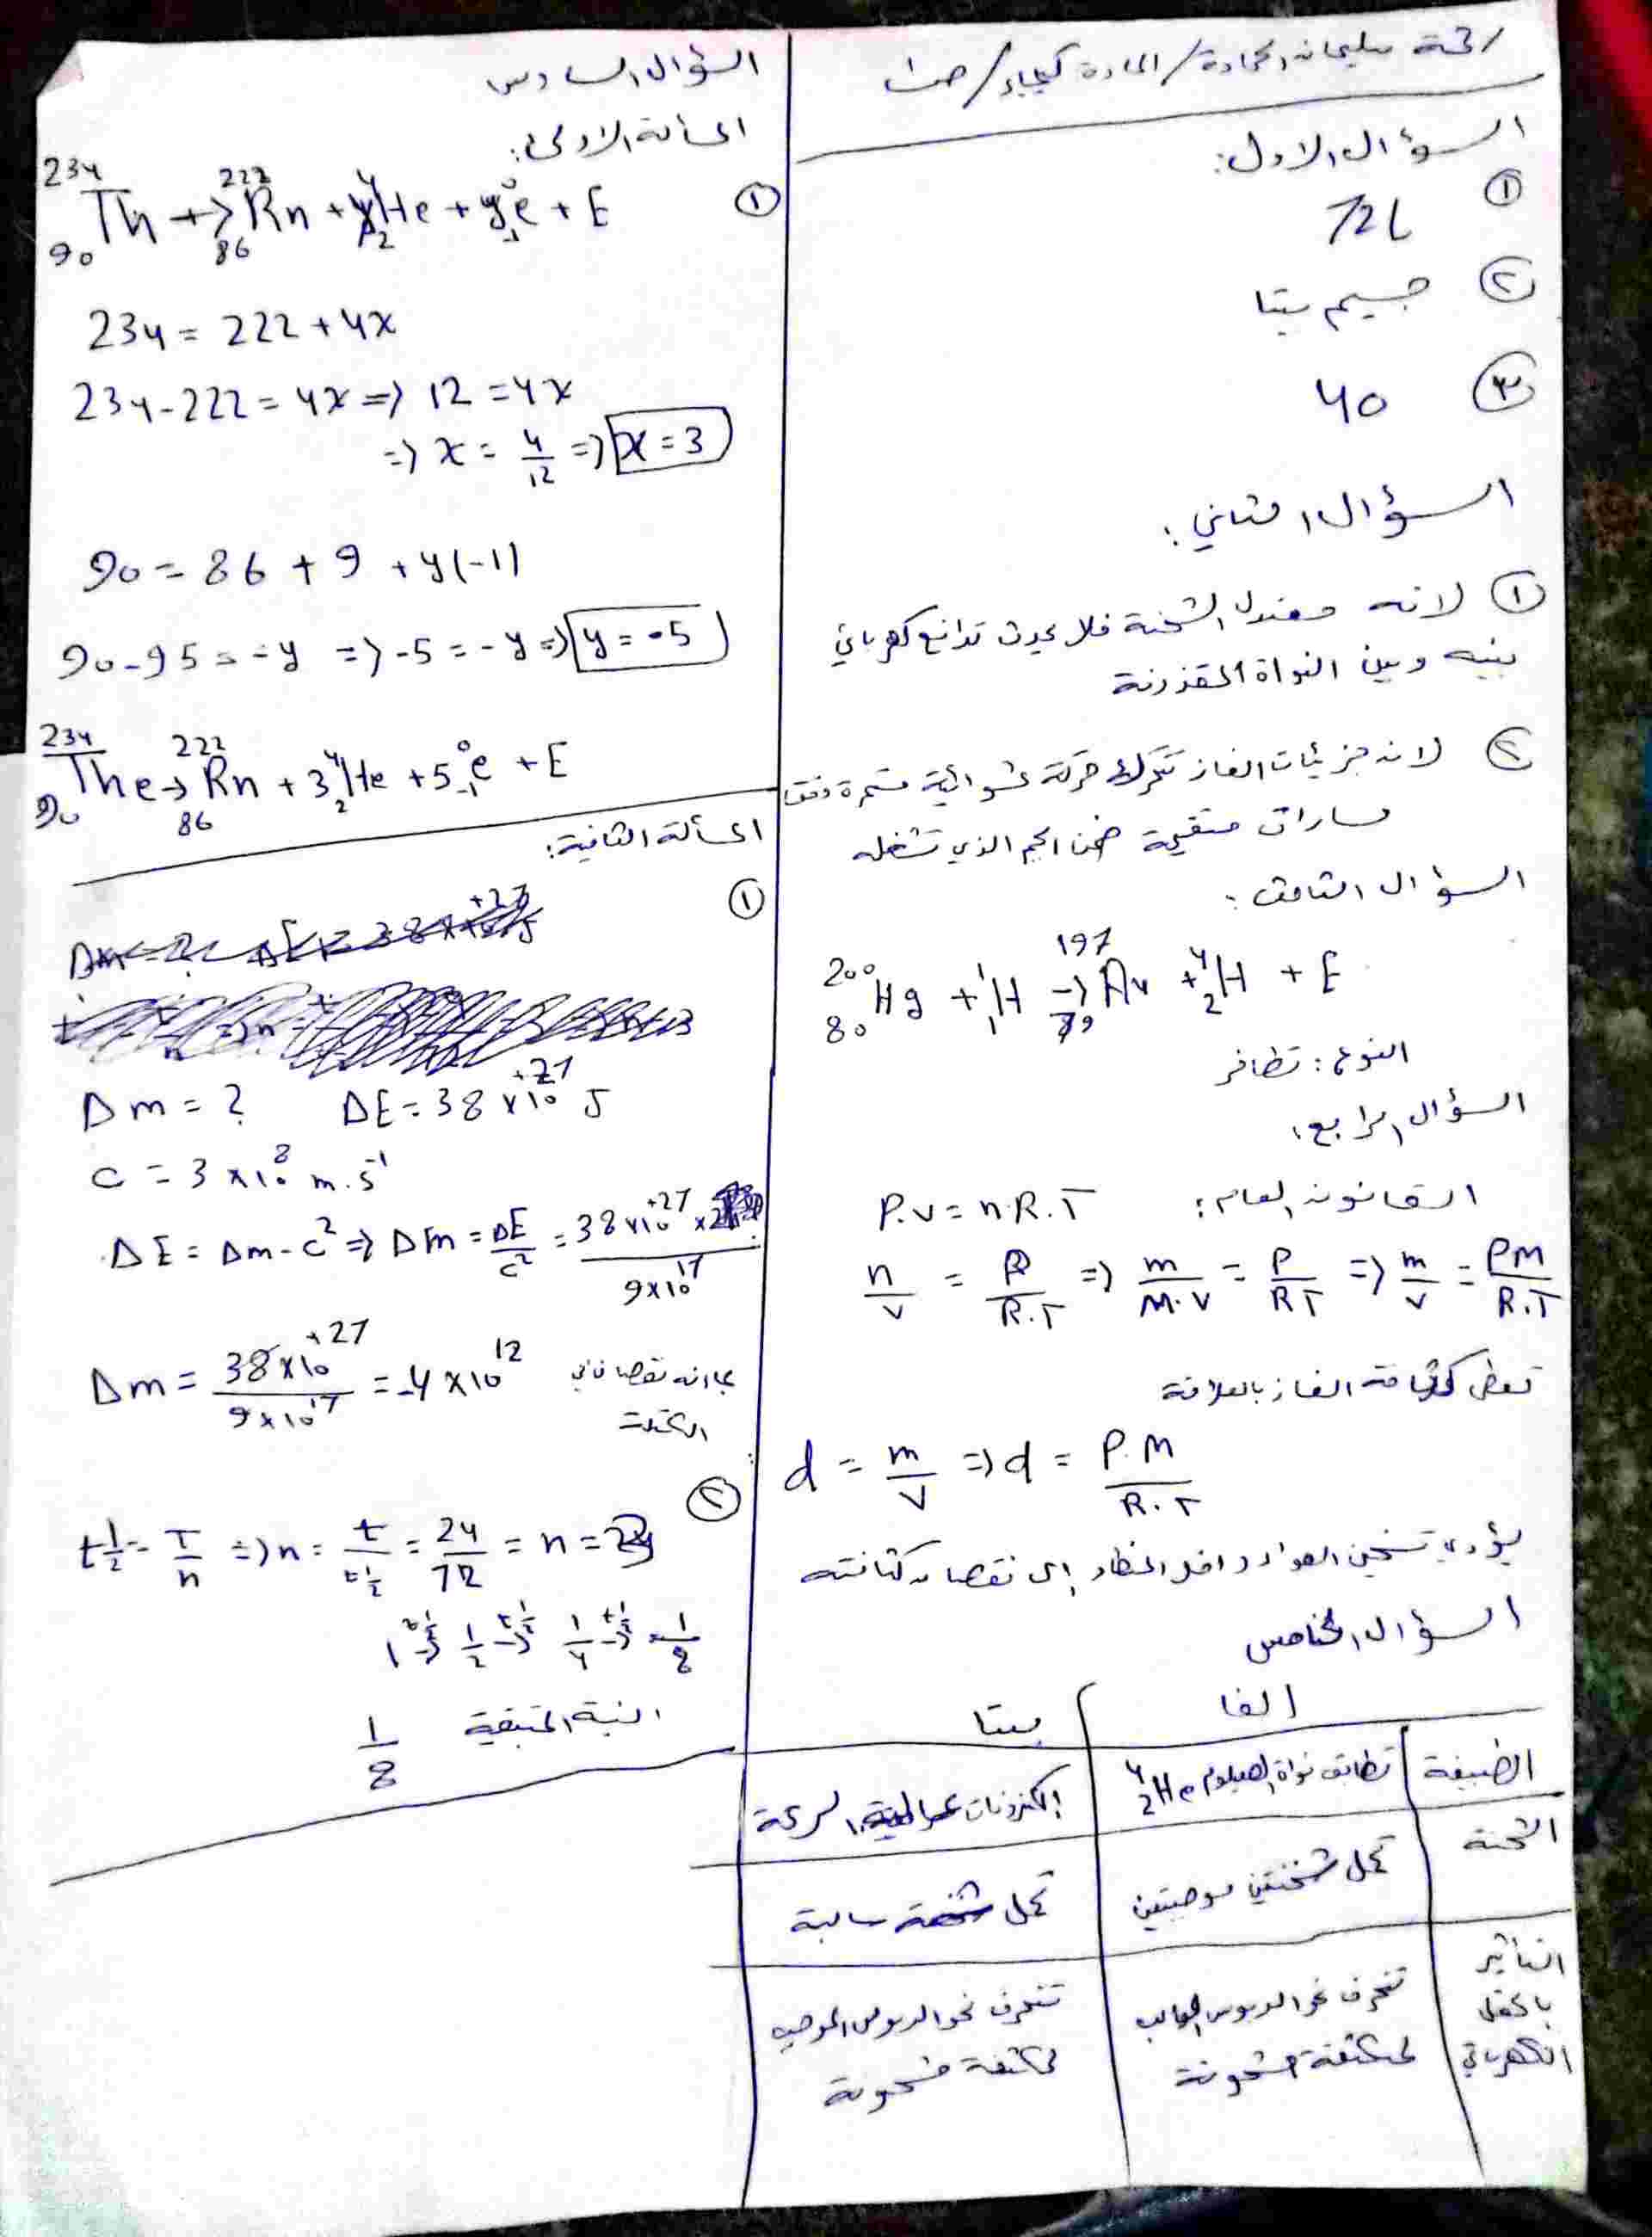 السؤال الاول:
① 72L
② جسيم بيتا
③ 40
السؤال الثاني:
① لانه معتدل الشحنة فلا يحدث تدافع كهربائي
بينه وبين النواة المقذوفة
② لانه جزيئات الغاز تتحرك حركة عشوائية مستمرة وفق
مسارات مستقيمة ضمن الحجم الذي تشغله
السؤال الثالث:
²⁰⁰₈₀Hg + ¹₁H → ¹⁹⁷₇₉Au + ⁴₂H + E
النوع: تطافر
السؤال الرابع:
القانون العام: P.V = n.R.T
n/V = P/R.T => m/M.V = P/RT => m/V = PM/R.T
تعطى كثافة الغاز بالعلاقة
d = m/V => d = P.M/R.T
يؤدي تسخين الهواء داخل المنطاد إلى نقصان كثافته
السؤال الخامس
الفا | بيتا
الطبيعة | تطابق نواة الهيليوم ⁴₂He | إلكترونات عالية السرعة
الشحنة | تحمل شحنتين موجبتين | تحمل شحنة سالبة
التأثير بالحقل الكهربائي | تنحرف نحو اللبوس السالب لمكثفة مشحونة | تنحرف نحو اللبوس الموجب لمكثفة مشحونة
السؤال السادس
المسألة الاولى:
① ²³⁴₉₀Th → ²²²₈₆Rn + x⁴₂He + y⁰₋₁e + E
234 = 222 + 4x
234 - 222 = 4x => 12 = 4x
=> x = 4/12 => x = 3
90 = 86 + 9 + y(-1)
90 - 95 = -y => -5 = -y => y = 5
²³⁴₉₀The → ²²²₈₆Rn + 3⁴₂He + 5⁰₋₁e + E
المسألة الثانية:
①
Δm = ? ΔE = 38 × 10⁺²⁷ J
C = 3 × 10⁸ m.s⁻¹
ΔE = Δm - C² => Δm = ΔE/C² = 38 × 10⁺²⁷ / 9 × 10¹⁷
Δm = 38 × 10⁺²⁷ / 9 × 10¹⁷ = -4 × 10¹² بما انه نقصان في
الكتلة
② t½ = T/n => n = t/t½ = 24/72 = n =
1 → 1/2 → 1/4 → 1/8
النسبة المتبقية 1/8